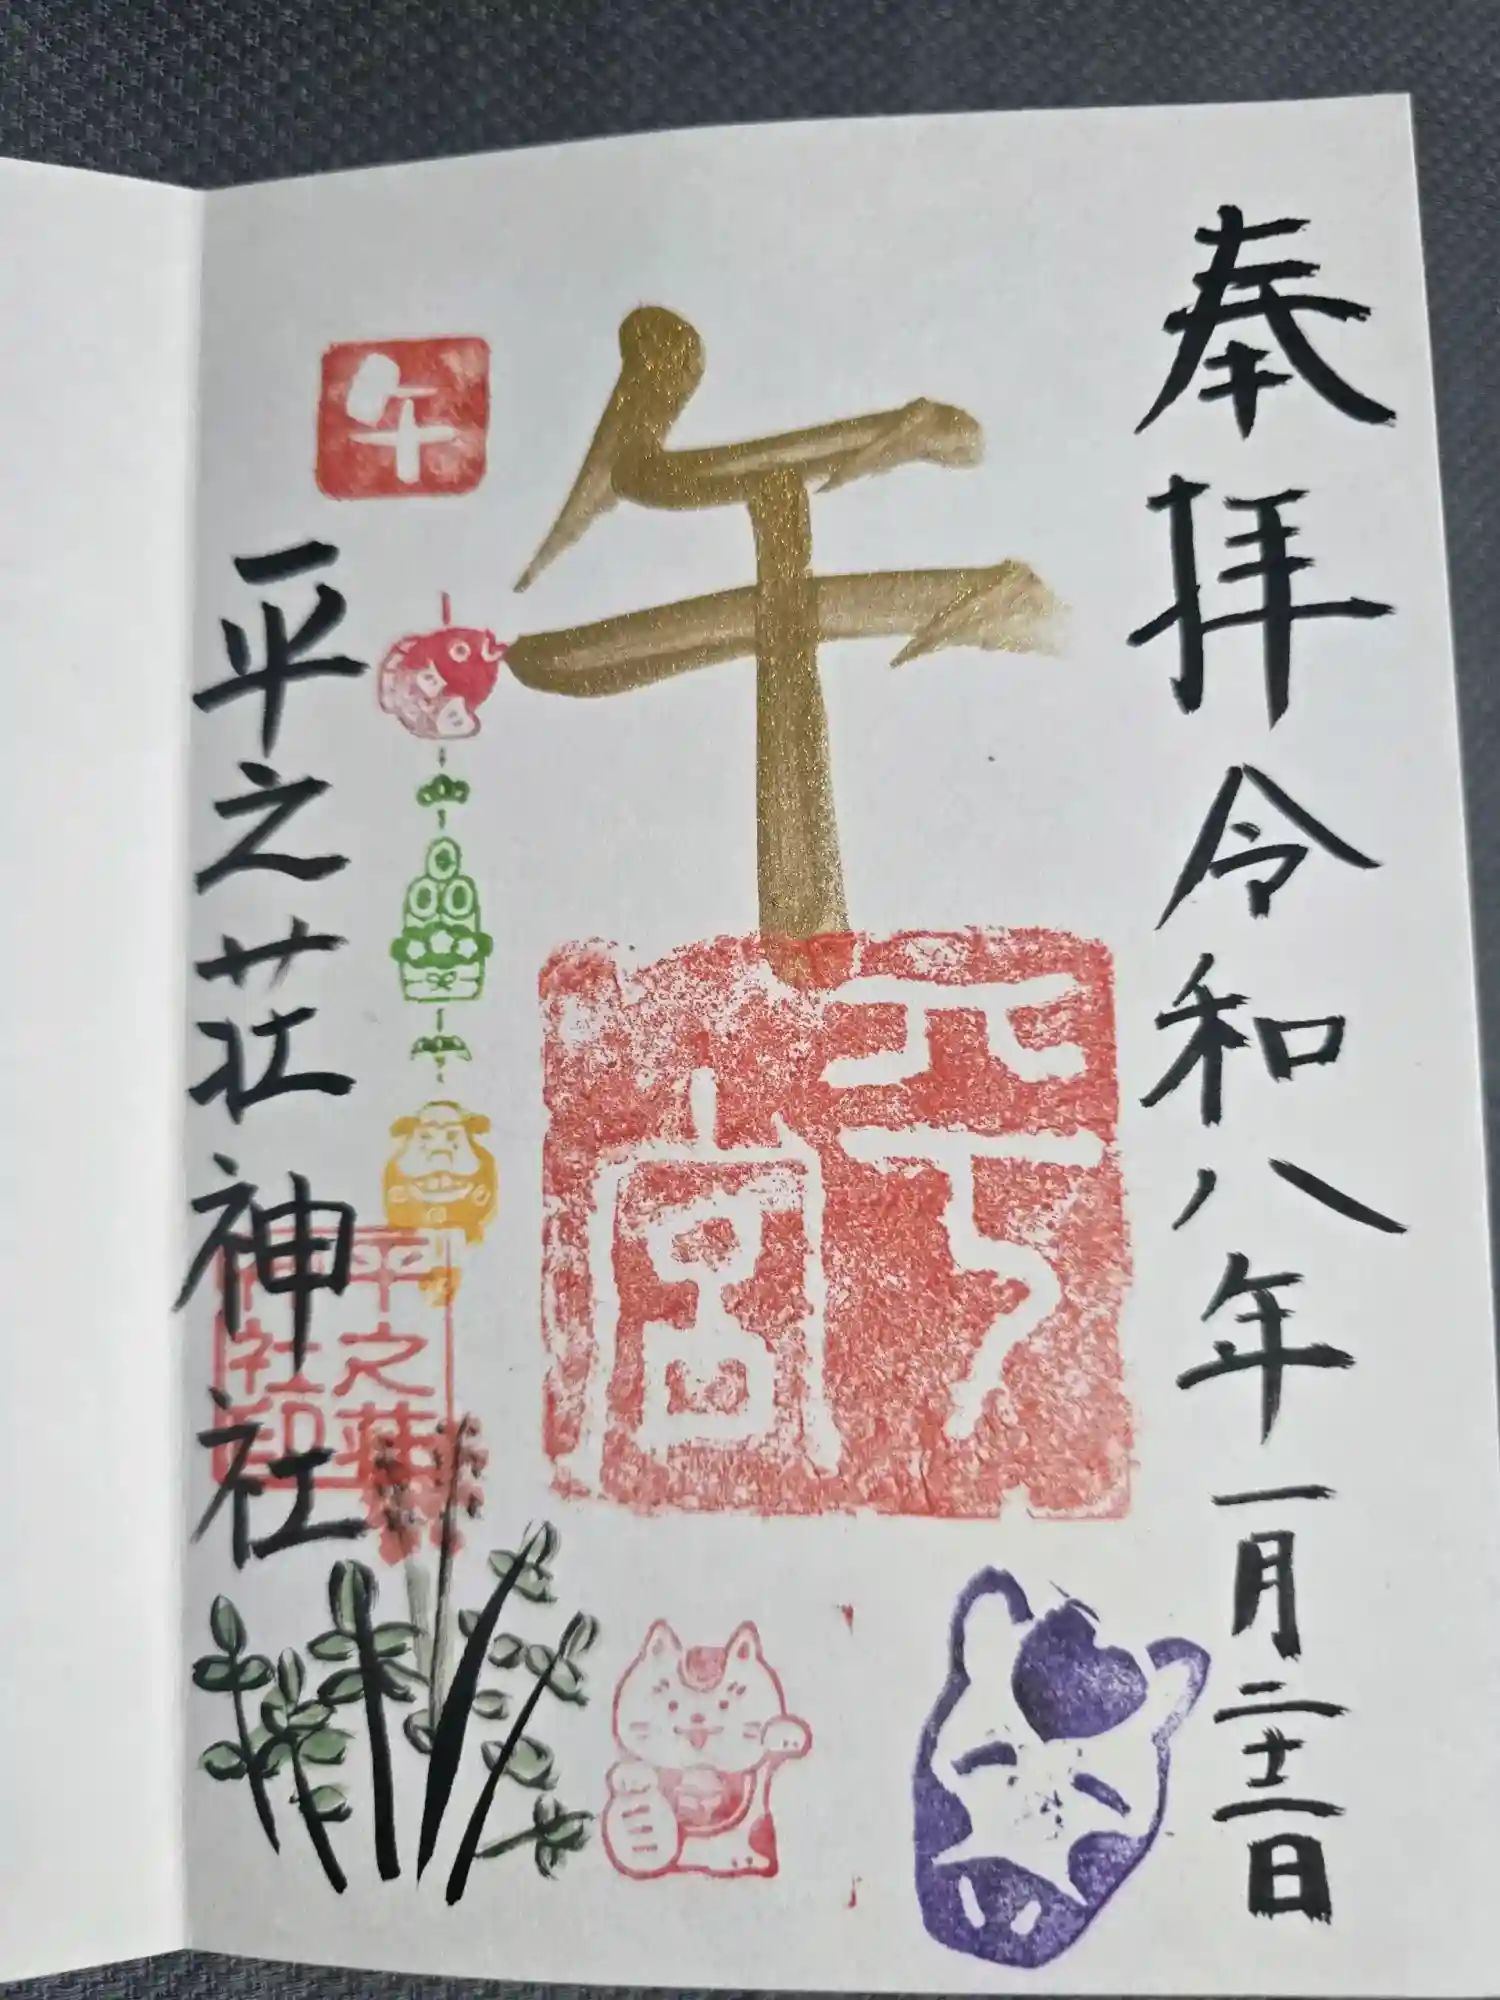 奉拝 令和八年一月二十一日
午
午
平之荘神社
平之荘神社印